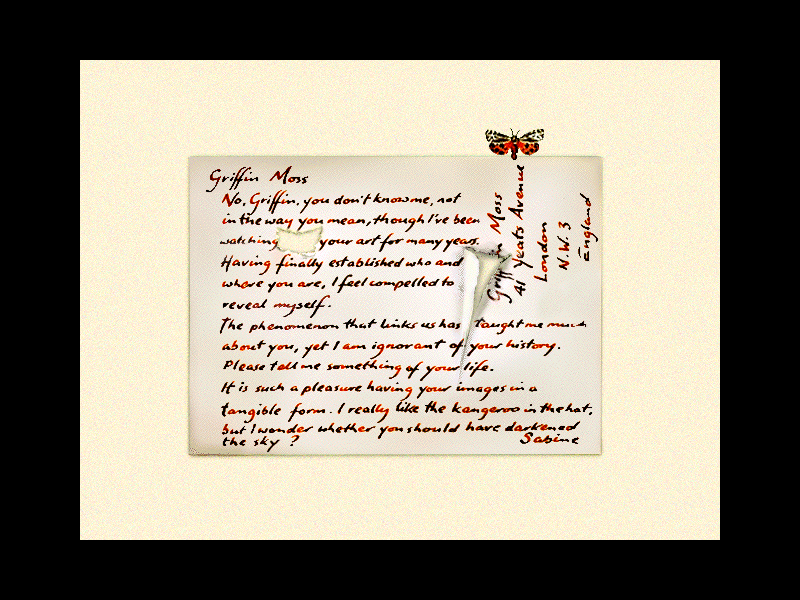 Griffin Moss
No, Griffin, you don't know me, not
in the way you mean, though I've been
watching your art for many years.
Having finally established who and
where you are, I feel compelled to
reveal myself.
The phenomenon that links us has taught me much
about you, yet I am ignorant of your history.
Please tell me something of your life.
It is such a pleasure having your images in a
tangible form. I really like the kangaroo in the hat,
but I wonder whether you should have darkened
the sky ?
Sabine
Griffin Moss
41 Yeats Avenue
London
N.W. 3
England